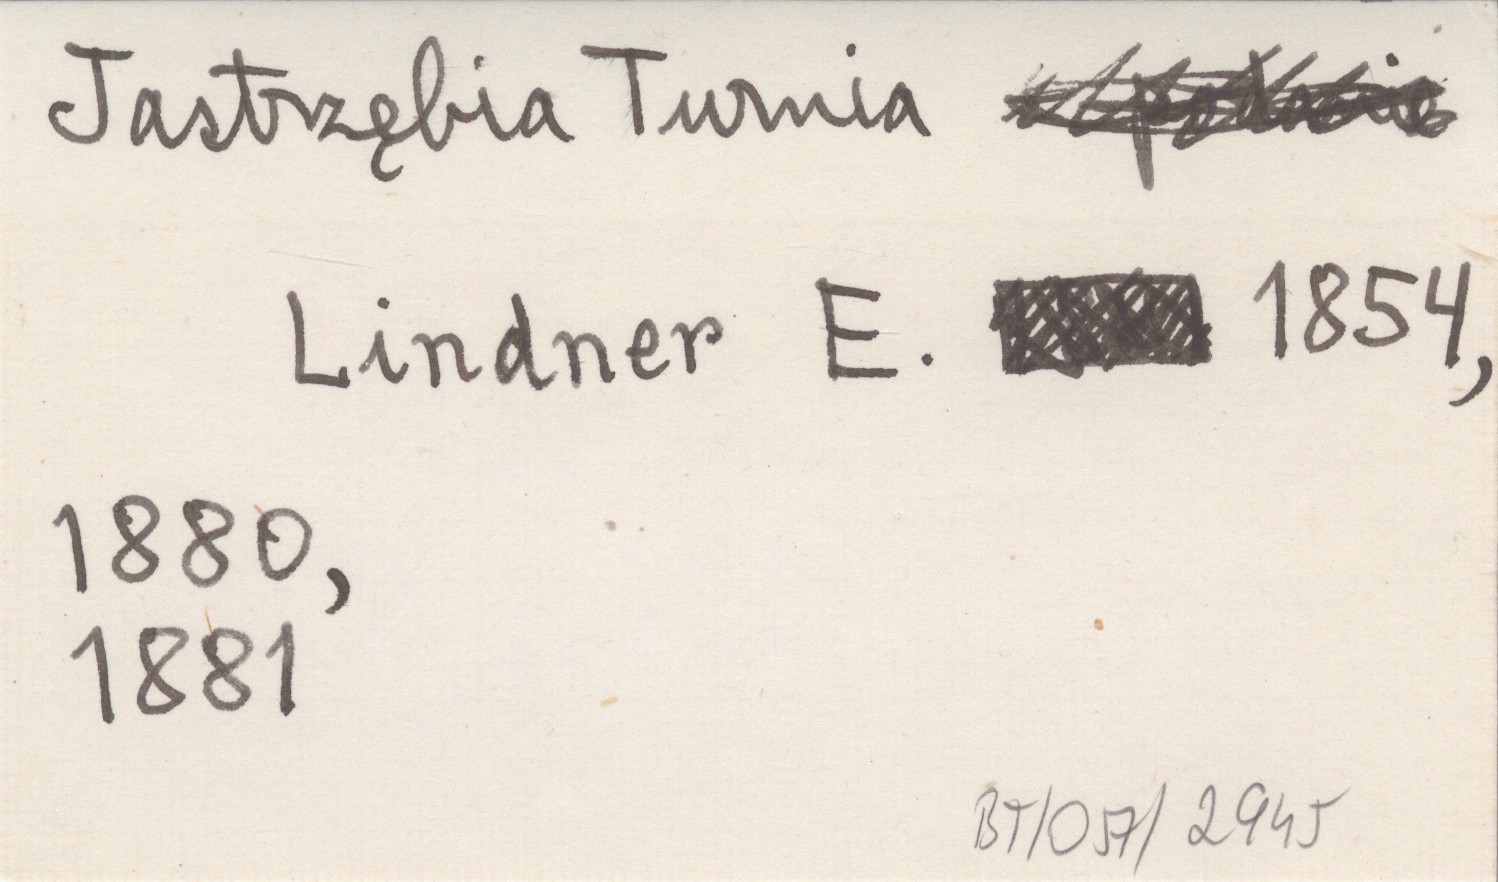 Jastrzębia Turnia
Lindner E. 1854,
1880,
1881
BT/057/2945